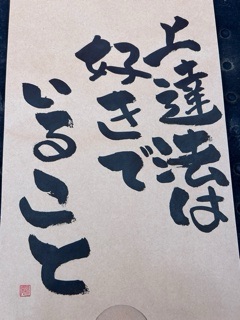 上達法は
好きで
いること